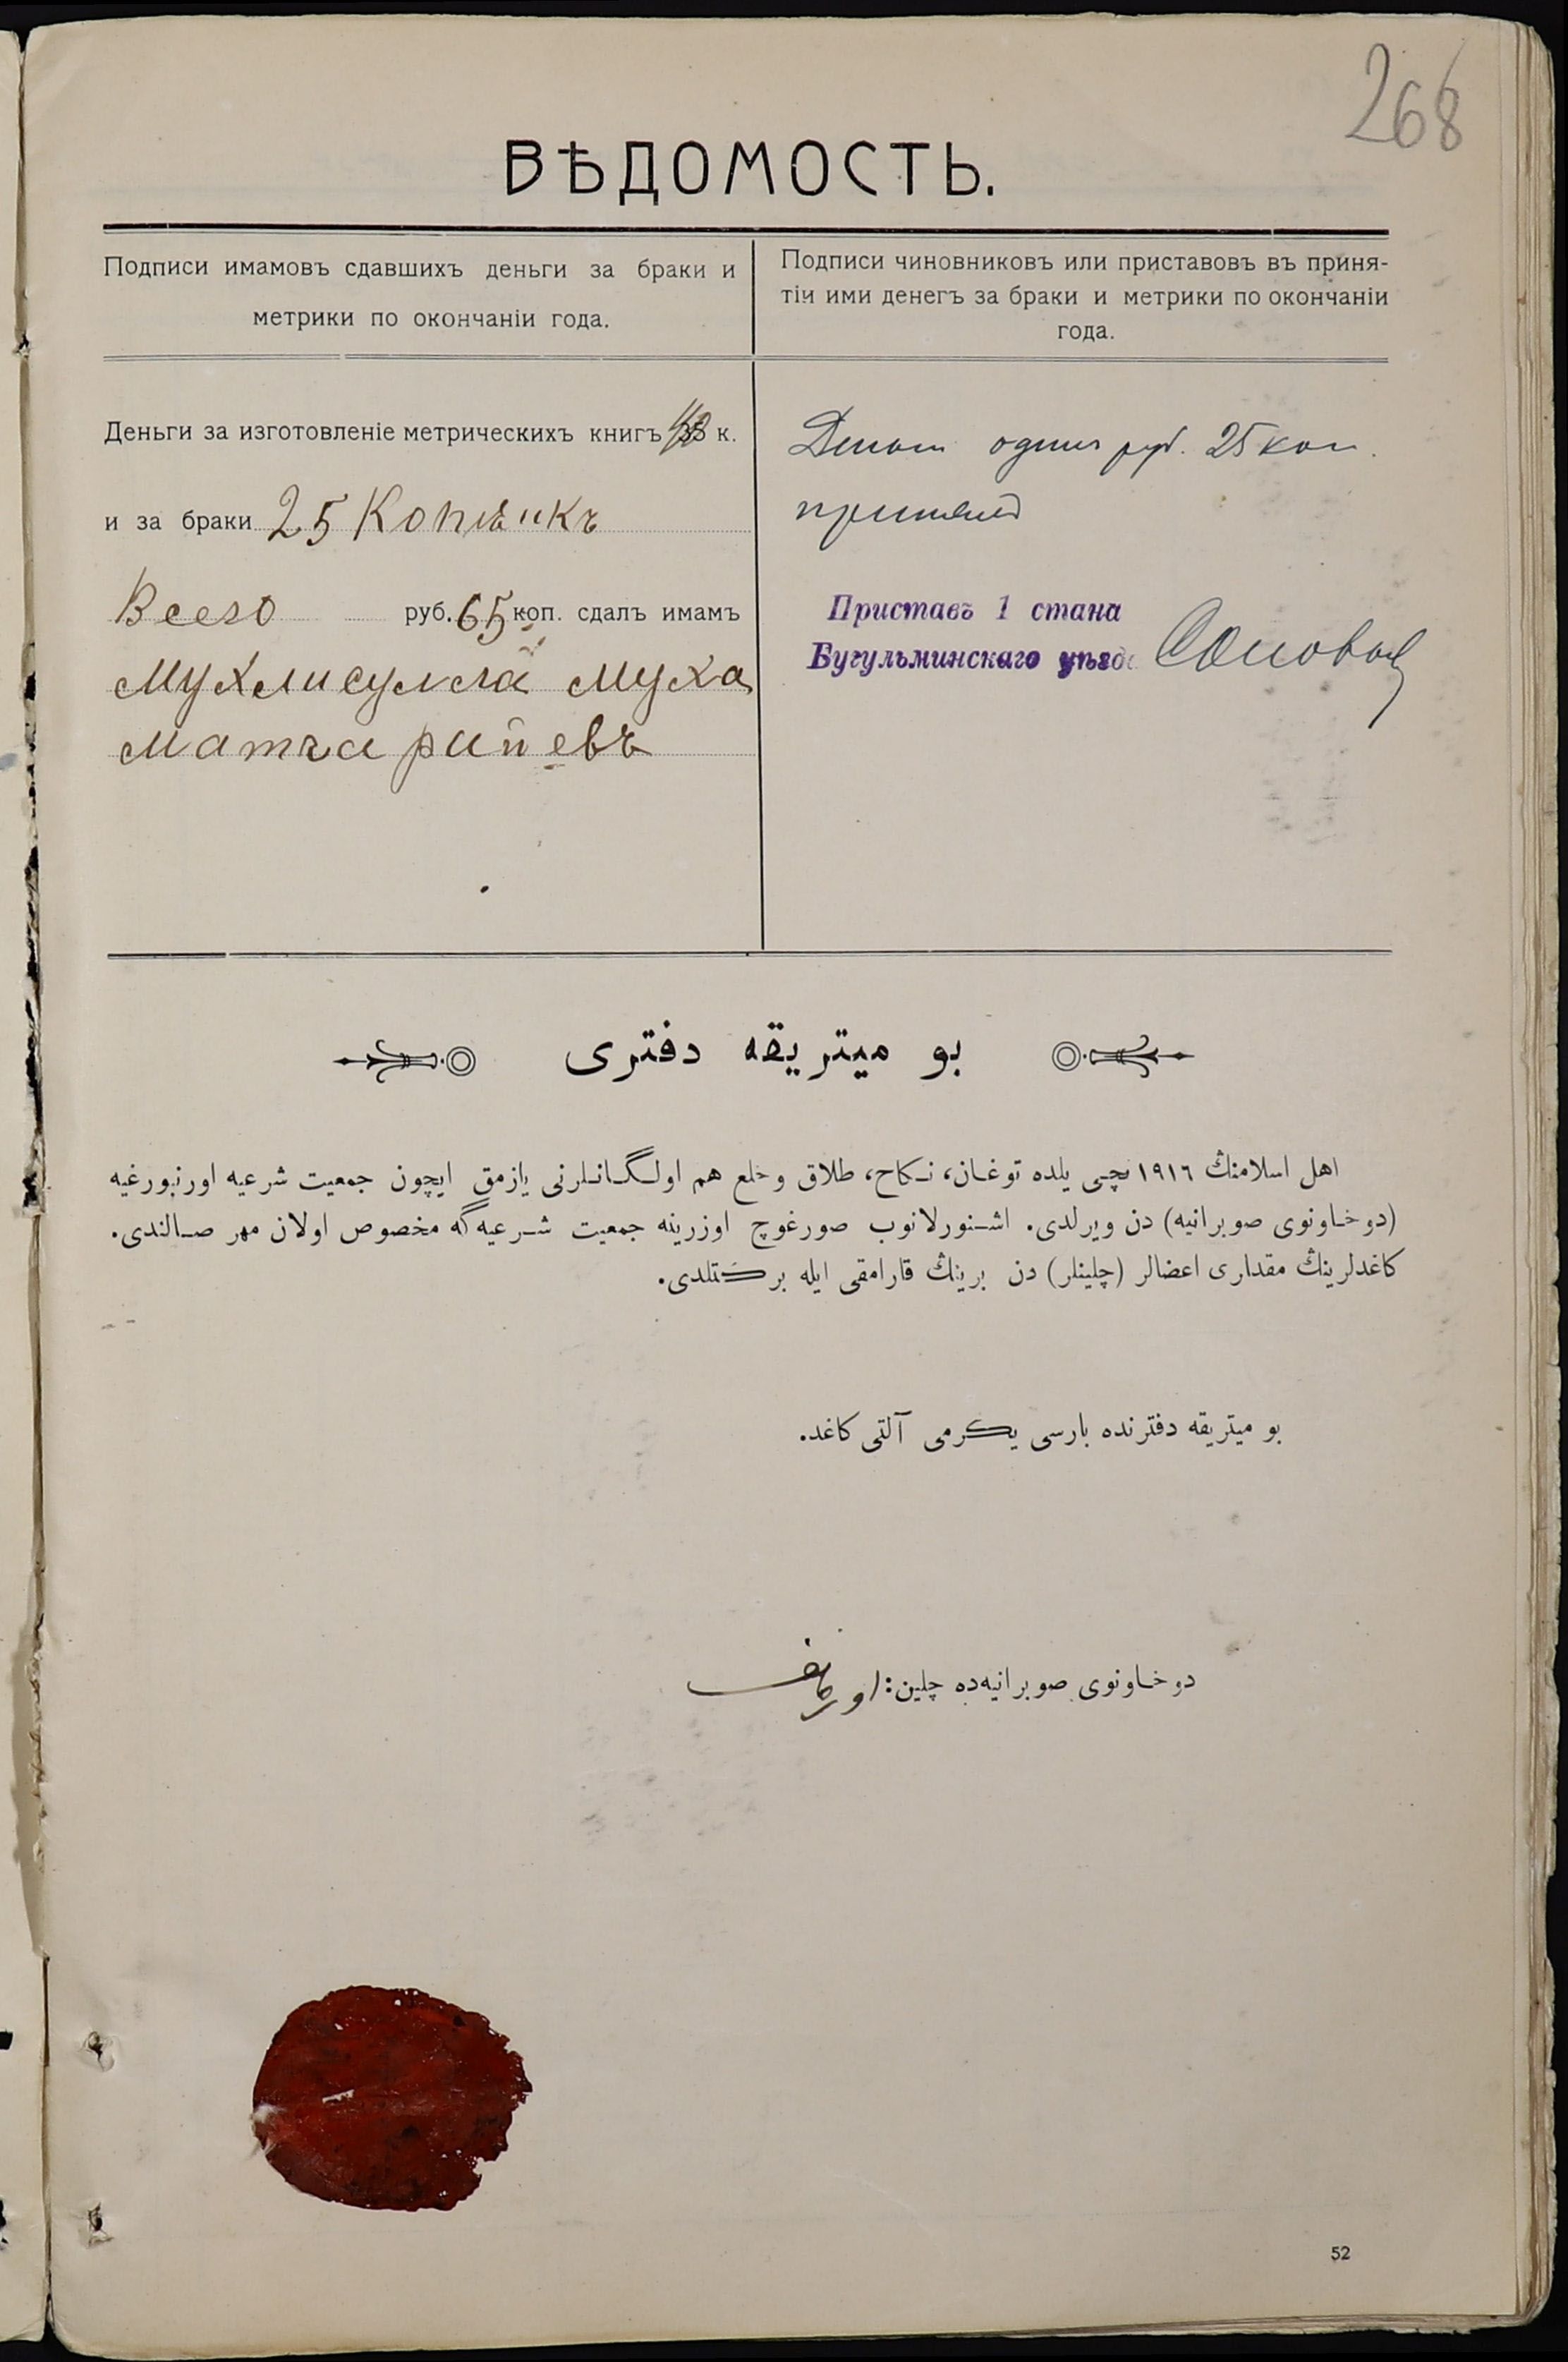 268
ВѢДОМОСТЬ.
Подписи имамовъ сдавшихъ деньги за браки и
метрики по окончаніи года.
Подписи чиновниковъ или приставовъ въ приня-
тіи ими денегъ за браки и метрики по окончаніи
года.
Деньги за изготовленіе метрическихъ книгъ 40 к.
и за браки 25 Копѣикъ
Всего руб. 65 коп. сдалъ имамъ
Мухлисулла Муха
матгарипевъ
Деньги один руб. 25 коп.
принялъ
Приставъ 1 стана
Бугульминскаго уѣзда
بو ميتريقه دفترى
اهل اسلامنڭ ١٩١٦ نچى يلده توغان، نكاح، طلاق وخلع هم اولگانلرنى يازمق ايچون جمعيت شرعيه اورنبورغيه
(دوخاونوى صوبرانيه) دن ويرلدى. اشنورلانوب صورغوچ اوزرينه جمعيت شرعيه گه مخصوص اولان مهر صالندى.
كاغدلرينڭ مقدارى اعضالر (چلينلر) دن برينڭ قارامقى ايله بركتلدى.
بو ميتريقه دفترنده بارسى يكرمى آلتى كاغد.
دوخاونوى صوبرانيه‌ده چلين:
52